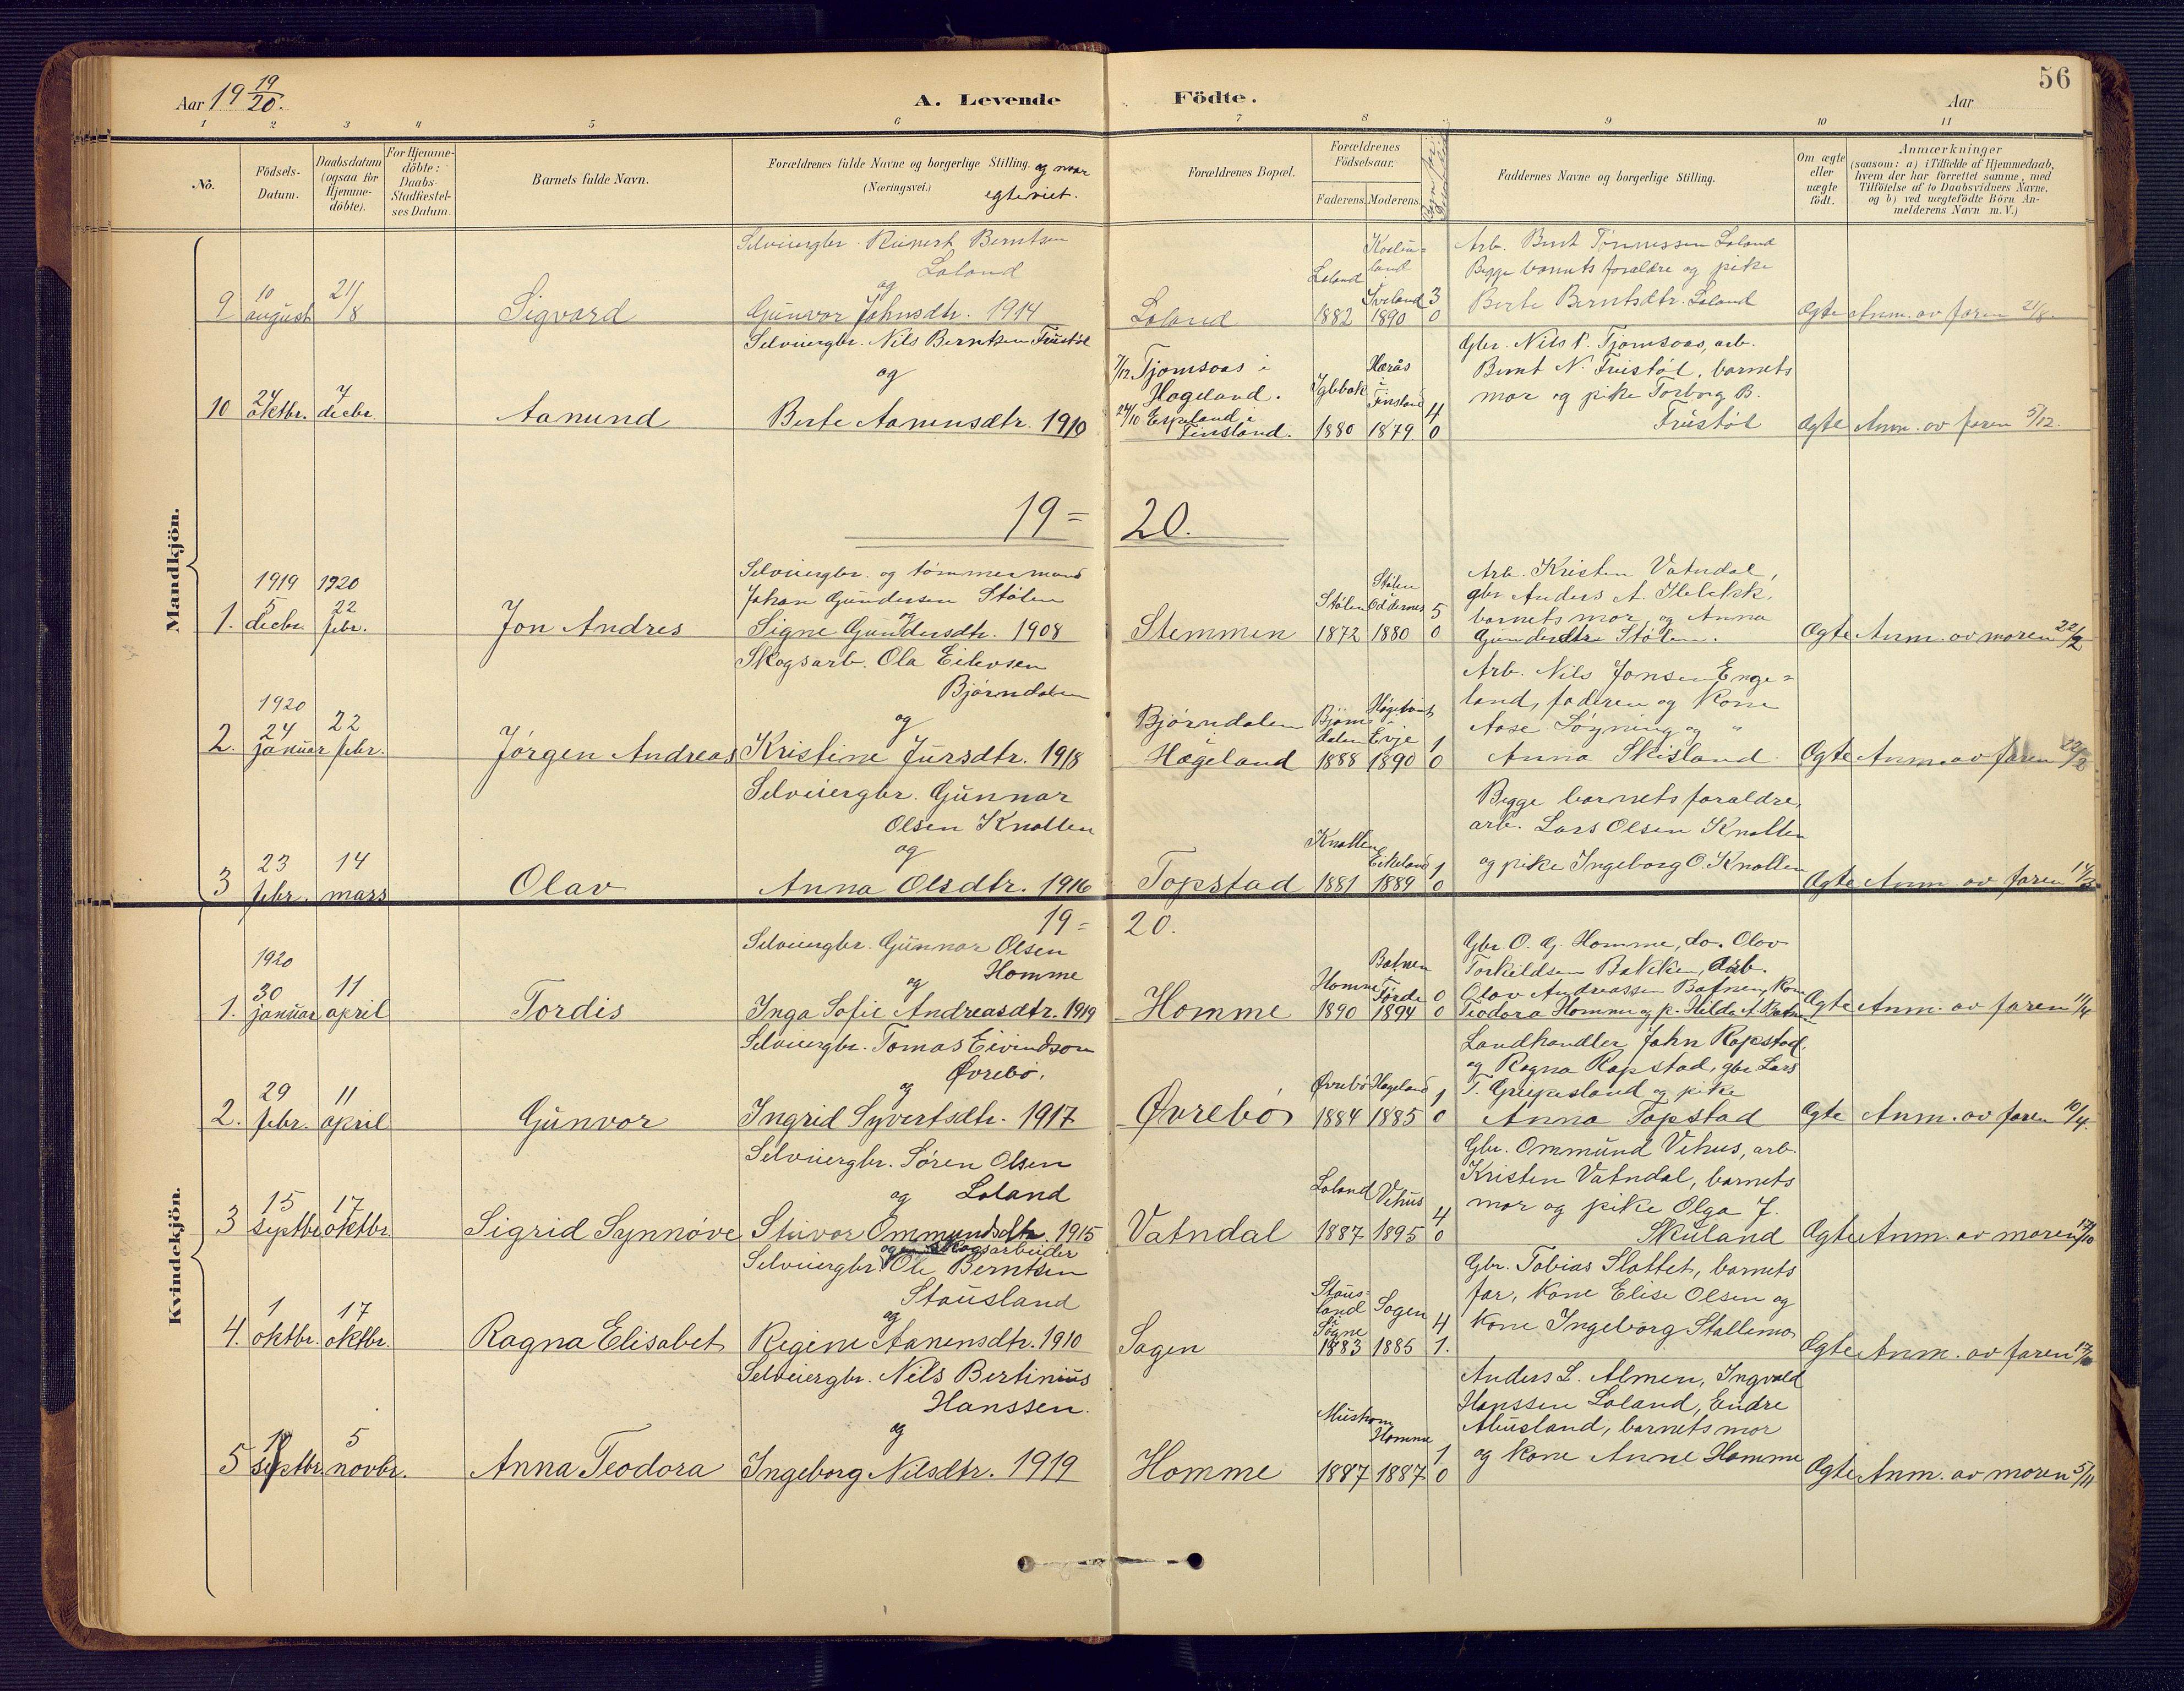 56
Aar 19 19/20.
A. Levende Födte.
Aar
1 2 3 4 5 6 7 8 9 10 11
No.
Födsels-Datum.
Daabsdatum (ogsaa for Hjemme-döbte).
For Hjemme-döbte: Daabs-Stadfæstel-ses Datum.
Barnets fulde Navn.
Forældrenes fulde Navne og borgerlige Stilling. og naar
(Næringsvei.) egteviet.
Forældrenes Bopæl.
Forældrenes Födselsaar.
Faderens. Moderens.
Faddernes Navne og borgerlige Stilling.
Om ægte eller uægte födt.
Anmærkninger
(saasom: a) i Tilfælde af Hjemmedaab,
hvem der har forrettet samme, med
Tilföielse af to Daabsvidners Navne.
og b) ved uægtefödte Börn An-
melderens Navn m. V.)
Mandkjön.
9 10 august 21/8 Sigvard
Selveiergbr. Reinert Berntsen
Loland
og
Gunvor Johnsdtr. 1914
Loland
Loland 1882
Iveland 1890
3 0
Arb. Bernt Tønnessen Loland
Begge barnets forældre og pike
Berte Berntsdtr. Loland
Ægte Anm. av faren 21/8.
10 24 oktbr. 7 decbr. Aanund
Selveiergbr. Nils Berntsen Frustøl
og
Berte Aanensdtr. 1910
7/12 Tjomsaas i
Hægeland.
24/10 Espeland i
Finsland.
Iglebæk 1880
Hærås i Finsland 1879
4 0
Gbr. Nils P. Tjomsaas, arb.
Bernt N. Frustøl, barnets
mor og pike Torborg B.
Frustøl
Ægte Anm. av faren 5/12.
19= 20.
1. 1919 5 decbr. 1920 22 febr. Jon Andres
Selveiergbr. og tømmermand
Johan Gundersen Stølen
og
Signe Gundersdtr. 1908
Stemmen
Stølen 1872
Stølen Oddernes 1880
5 0
Arb. Kristen Vatndal,
gbr Anders A.
barnets mor, og Anna
Gundersdtr Stølen.
Ægte Anm. av moren 22/2
2. 1920 24 januar 22 febr. Jørgen Andreas
Skogsarb. Ola Eilevsen
Bjørndalen
og
Kristine Jursdtr. 1918
Bjørndalen
Hægeland
Bjørndalen 1888
Evje 1890
1 0
Arb. Nils Jonsen Enge=
land, faderen og kone
Aase Løyning og "
Anna Skisland
Ægte Anm. av faren 22/2
3 23 febr. 14 mars Olav
Selveiergbr. Gunnar
Olsen Knollen
og
Anna Olsdtr. 1916
Topstad
Knollen 1881
Eikeland 1889
1 0
Begge barnets forældre,
arb. Lars Olsen Knollen
og pike Ingeborg O. Knollen
Ægte Anm av faren 14/3
Kvindekjön.
19= 20.
1. 1920 30 januar 11 april Tordis
Selveiergbr. Gunnar Olsen
Homme
og
Inga Sofie Andreasdtr. 1919
Homme
Homme 1890
Batnen Førde 1894
0 0
Gbr. O. G. Homme, do. Olav
Torkildsen Bakken, Arb.
Olav Andreassen Batnen, Kone
Teodora Homme og p. Hilda A. Batnen
Ægte Anm. av faren 11/4
2. 29 febr. 11 april Gunvor
Selveiergbr. Tomas Eivindson
Øvrebø.
og
Ingrid Syvertsdtr. 1917
Øvrebø
Øvrebø 1884
Hægeland 1885
1 0
Landhandler John Ropstad,
og Ragna Ropstad, gbr Lars
T. Greipsland og pike
Anna Topstad
Ægte Anm. av faren 10/4.
3 15 septbr. 17 oktbr. Sigrid Synnøve
Selveiergbr. Søren Olsen
og Loland
Stuvor Ommundsdtr. 1915
Vatndal
Loland 1887
Vehus 1895
4 0
Gbr. Ommund Vehus, arb.
Kristen Vatndal, barnets
mor og pike Olga J.
Skuland
Ægte Anm. av moren 17/10
4. 1 oktbr. 17 oktbr. Ragna Elisabet
og skogsarbeider
Selveiergbr Ole Berntsen
Stausland
og
Regine Aanensdtr. 1910
Sagen
Stausland i Søgne 1883
Sagen 1885
4 1.
Gbr. Tobias Slottet, barnets
far, kone Elise Olsen og
kone Ingeborg Stallemo
Ægte Anm. av faren 17/10
5 septbr 5 novbr. Anna Teodora
Selveiergbr. Nils Bertinius
Hanssen.
og
Ingeborg Nilsdtr. 1919
Homme
1887
Homme 1887
1 0
Anders L. Almen, Ingvald
Hanssen Loland, Endre
Musland, barnets mor
og kone Anne Homme
Ægte Anm. av moren 5/11